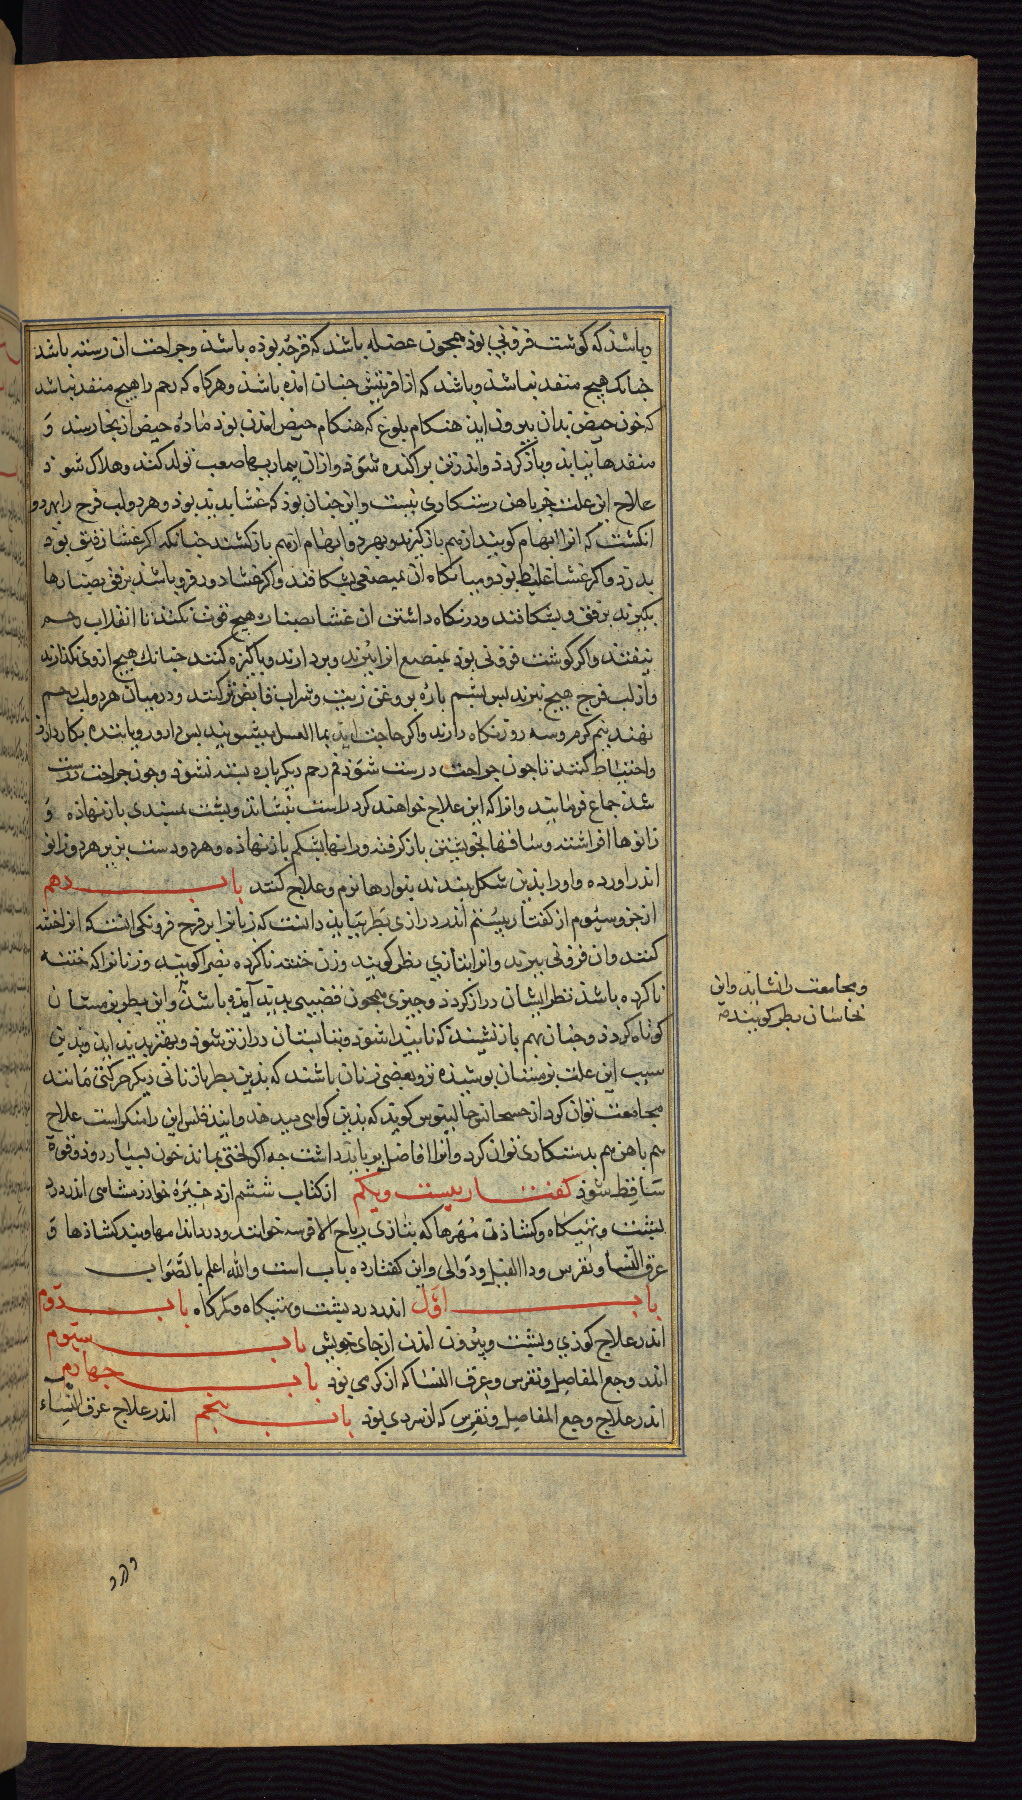 وباشد که گوشت فزونی بوذ همجون عضله باشد که قرحه بوذه باشد وجراحت ان رسته باشد
جنانک هیج منفد نباشد وباشد که از افرینش جنان امذه باشد وهرکاه که رحم را هیج منفد نباشد
که خون حیض بدان بیرون اید هنکام بلوغ که هنکام حیض امدن بوذ ماده حیض از بخار سند و
منفدها نیابد وباز کردد واندر تن براکنده شوذ وازان بیماریهاء صعب تولد کند وهلاک شوذ
علاج این علت جز باهن دستکاری نیست واین جنان بوذ که غشا بدید بوذ وهر دو لب فرج را بهر دو
انکشت که انرا ابهام کویند از هم باز کیرند وبهر دو ابهام از هم باز کشند جنانکه اکر غشا رقیق بوذ
بدرد واکر غشا غلیظ بوذ ومیانکاه ان بمبضعی بشکافند واکر غشا دور فرو باشد برفق بصنارها
بکیرند برفق وبشکافند ودر نکاه داشتن ان غشا بصنارها هیج قوت نکنند تا انقلاب رحم
نیفتد واکر کوشت فزونی بوذ بمبضع انرا ببرند وبردارند وپاکیزه کنند جنانک هیج ازوی نکذارند
واز لب فرج هیج نبرند بس بشم باره بروغن زیت وشراب قابض تر کنند ودر میان هر دو لب رحم
نهند نیم کرم وسه روز نکاه دارند واکر حاجت اید بما العسل میشویند بس دارو رویانده بکار دارند
واحتیاط کنند تا جون جراحت درست شوذ فم رحم دیکر باره بسته نشوذ وجون جراحت درست
شد جماع فرمایند وانرا که این علاج خواهند کرد راست بنشاند وبشت بمسندی باز نهاذه و
زانوها افراشته وساقها بخویشتن باز کرفته ورانها بشکم باز نهاذه وهر دو دست بزیر هر دو زانو
اندر اورده واورا بدین شکل ببندند بنوارهاء نرم وعلاج کنند باب دهم
از جزو سیوم از کفتار بیستم اندر درازی بظر بباید دانست که زنانرا بر فرج فزونکی است که انرا ختنه
کنند وان فزونی ببرند وانرا بتازی بظر کویند وزن ختنه ناکرده بظرا کویند وزنانرا که ختنه
ناکرده باشد بظر ایشان دراز کردد وجیزی همجون قضیبی بدید آیذ وباشد واین بظر بزمستان
کوتاه کردد وجنان بهم باز نشیند که نابیدا شوذ وبتابستان درازتر شوذ وبهتر بدید اید وبدین
سبب این علت بزمستان بوشیذه تر وبعضی زنان باشند که بذین بظر با زنانی دیکر حرکتی مانند
مجامعت توان کرد از همجنان جالینوس کوید که
هم باهن هم بدستکاری توان کرد وانرا فاضل بر باید داشت جه اکر لختی بماند خون بسیار رود وقوة
ساقط شوذ کفتار بیست ویکم از کتاب ششم از ذخیرهٔ خوارزمشاهی اندر درد
بشت وتهیکاه وکشاذن مهرها که بتازی ریاح الافرسه خوانند ودرد اندامها وبندکشاذها و
عرق النسا ونقرس ودا الفیل ودوالی واین کفتار ده باب است والله اعلم بالصواب
باب اول اندر درد بشت وتهیکاه وکمرکاه باب دوم
اندر علاج کوذی وبشت وبیرون امدن از جای خویش باب سیوم
اندر وجع المفاصل ونقرس وعرق النسا که از کرمی بوذ باب جهارم
اندر علاج وجع المفاصل ونقرس که از سردی بوذ باب بنجم اندر علاج عرق النساء
ومجامعت را نشاید واین
نخاسان بظر کویند صح